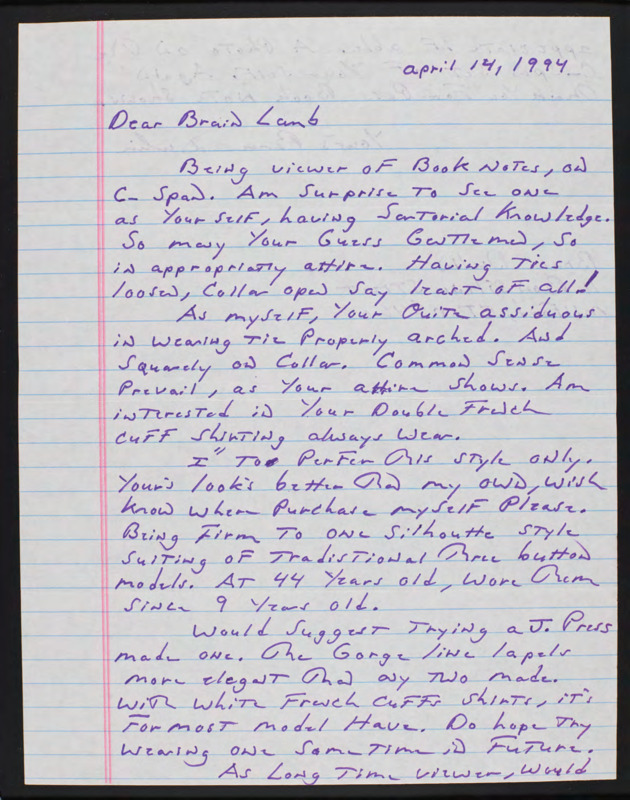 april 14, 1994.
Dear Brain Lamb
Being viewer of Book Notes, on
C-Span. Am Surprise To See one
as Your self, having Sartorial Knowledge.
So many Your Guess Gentlemen, So
in appropriatly attire. Having Ties
loosen, Collar open say least of all!
As myself, Your Quite assiduous
in wearing Tie Properly arched. And
Squarely on Collar. Common Sense
Prevail, as Your attire shows. Am
interested in Your Double French
cuff Shirting always wear.
I" To Perfer This style only.
Your's look's better Than my own, wish
Know where Purchase myself Please.
Being Firm To one Silhoutte style
Suiting of Tradistional Three button
models. At 44 Years old, wore Them
Since 9 Years old.
Would Suggest Trying a J. Press
made one. The Gorge line lapels
more elegant Than any Two made.
With White French Cuffs Shirts, it's
Formost model Have. Do hope Try
Wearing one Some Time in Future.
As Long Time viewer, would